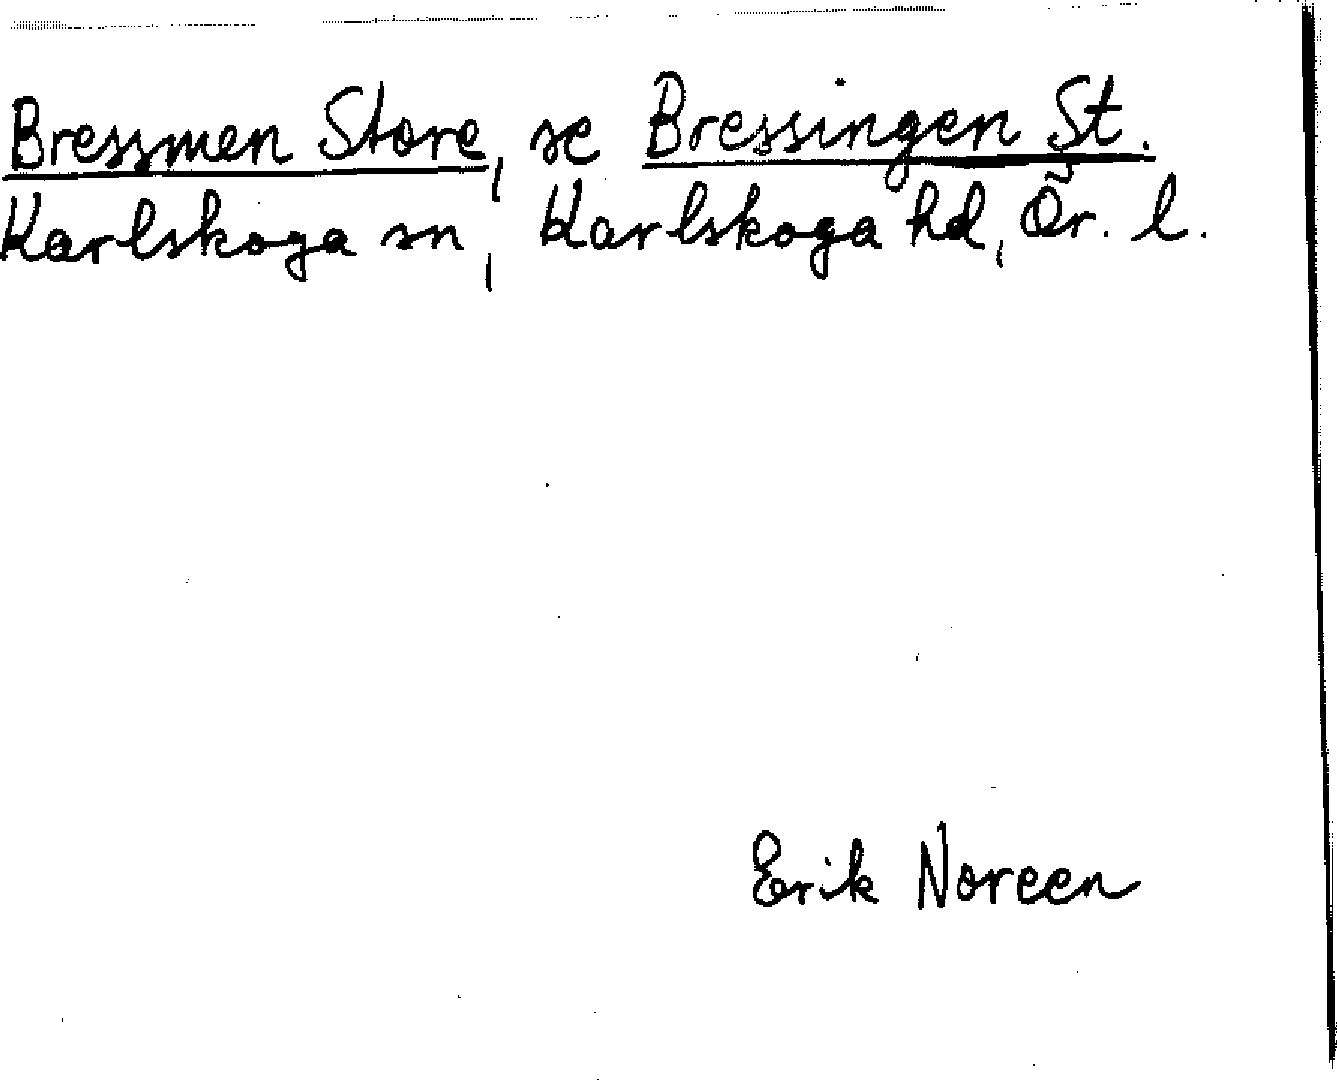 Bressmen Store, se Bressingen St.
Karlskoga sn, Karlskoga hd, Ör. l.
Erik Noreen